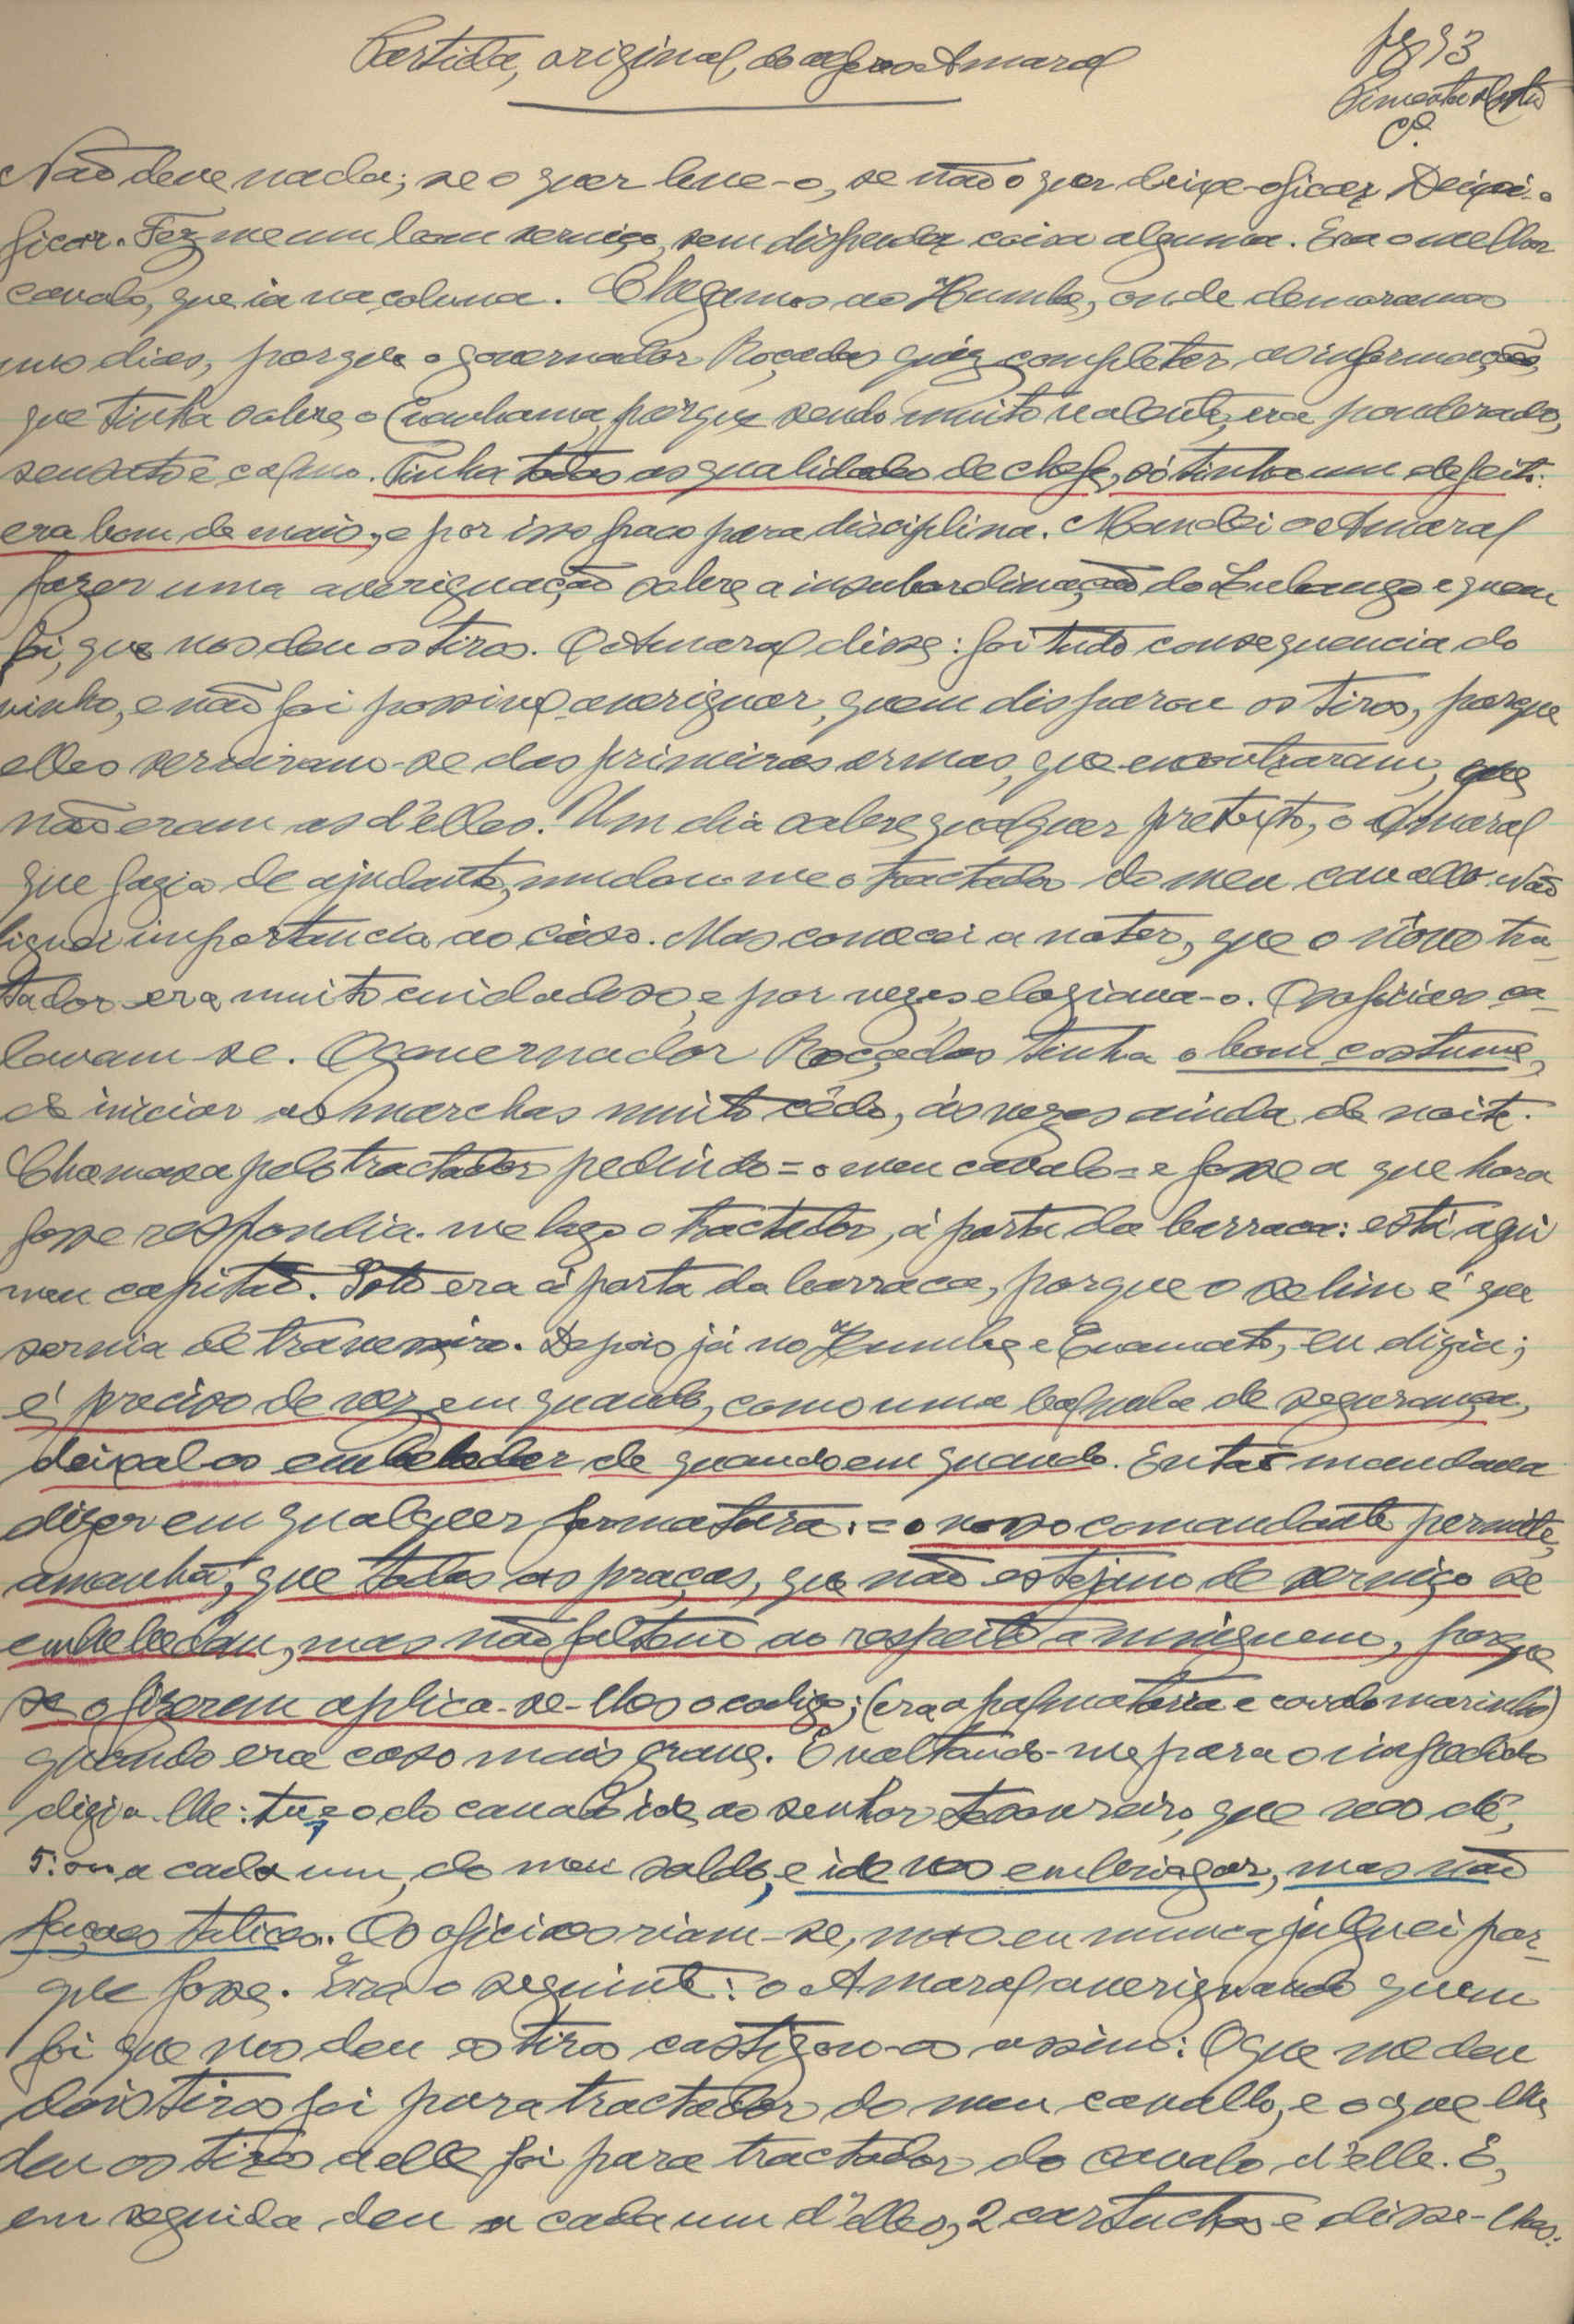 Partida, original, do alferes Amaral
fg 93
Pimenta da
Cª
Não deve nada; se o quer leve-o, se não o quer deixe-o ficar. Deixei-o
ficar. Fez me um bom serviço, sem dispender coisa alguma. Era o melhor
cavalo, que ia na coluna. Chegamos ao Humbe, onde demoramos
uns dias, porque o governador Roçadas quiz completar as informações,
que tinha sobre o Cuanhama, porque sendo muito valente, era ponderado,
sensato e calmo. Tinha todas as qualidades de chefe, só tinha um defeito:
era bom de mais, e por isso fraco para disciplina. Mandei o Amaral
fazer uma averiguação sobre a insubordinação do Lubango e quem
foi, que nos deu os tiros. O Amaral disse: foi tudo consequencia do
vinho, e não foi possivel averiguar, quem disparou os tiros, porque
elles serviram-se das primeiras armas, que encontraram, que
não eram as d'elles. Um dia sobre qualquer pretexto, o Amaral
que fazia de ajudante, mudou-me o tractador do meu cavallo. Não
liguei importancia ao cáso. Mas comecei a notar, que o nôvo tra-
tador era muito cuidadoso, e por vezes elogiava-o. Os oficiaes ca-
lavam se. O governador Roçadas tinha o bom costume,
de iniciar as marchas muito cêdo, ás vezes ainda de noite.
Chamava pelo tractador pedindo = o meu cavalo = e fosse a que hora
fosse respondia-me logo o tractador, á porta da barraca: está aqui
meu capitão. Isto era á porta da barraca, porque o selim é que
servia de travesseiro. Depois já no Humbe e Cuamato, eu dizia;
é preciso de vez em quando, como uma valvula de segurança,
deixal-os embebedar de quando em quando. Então mandava
dizer em qualquer formatura: = o nosso comandante permite,
amanhã, que todas as praças, que não estejam de serviço se
embebedem, mas não faltem ao respeito a ninguem, porque
se o fizerem aplica-se-lhes o codigo; (era a palmatoria e cavalo marinho)
quando era caso mais grave. E voltando-me para o impedido
dizia-lhe: tu e o do cavalo ide ao senhor tesoureiro, que vos dê,
a cada um, do meu soldo, e ide vos embriagar, mas não
façaes tolices. Os oficiaes riam-se, mas eu nunca julguei por-
que fosse. Era o seguinte: o Amaral averiguando quem
foi que nos deu os tiros castigou-os assim: O que me deu
dois tiros foi para tractador do meu cavallo, e o que lhe
deu os tiros a elle foi para tractador do cavalo d'elle. E,
em seguida deu a cada um d'elles, 2 cartuchos e disse-lhes: